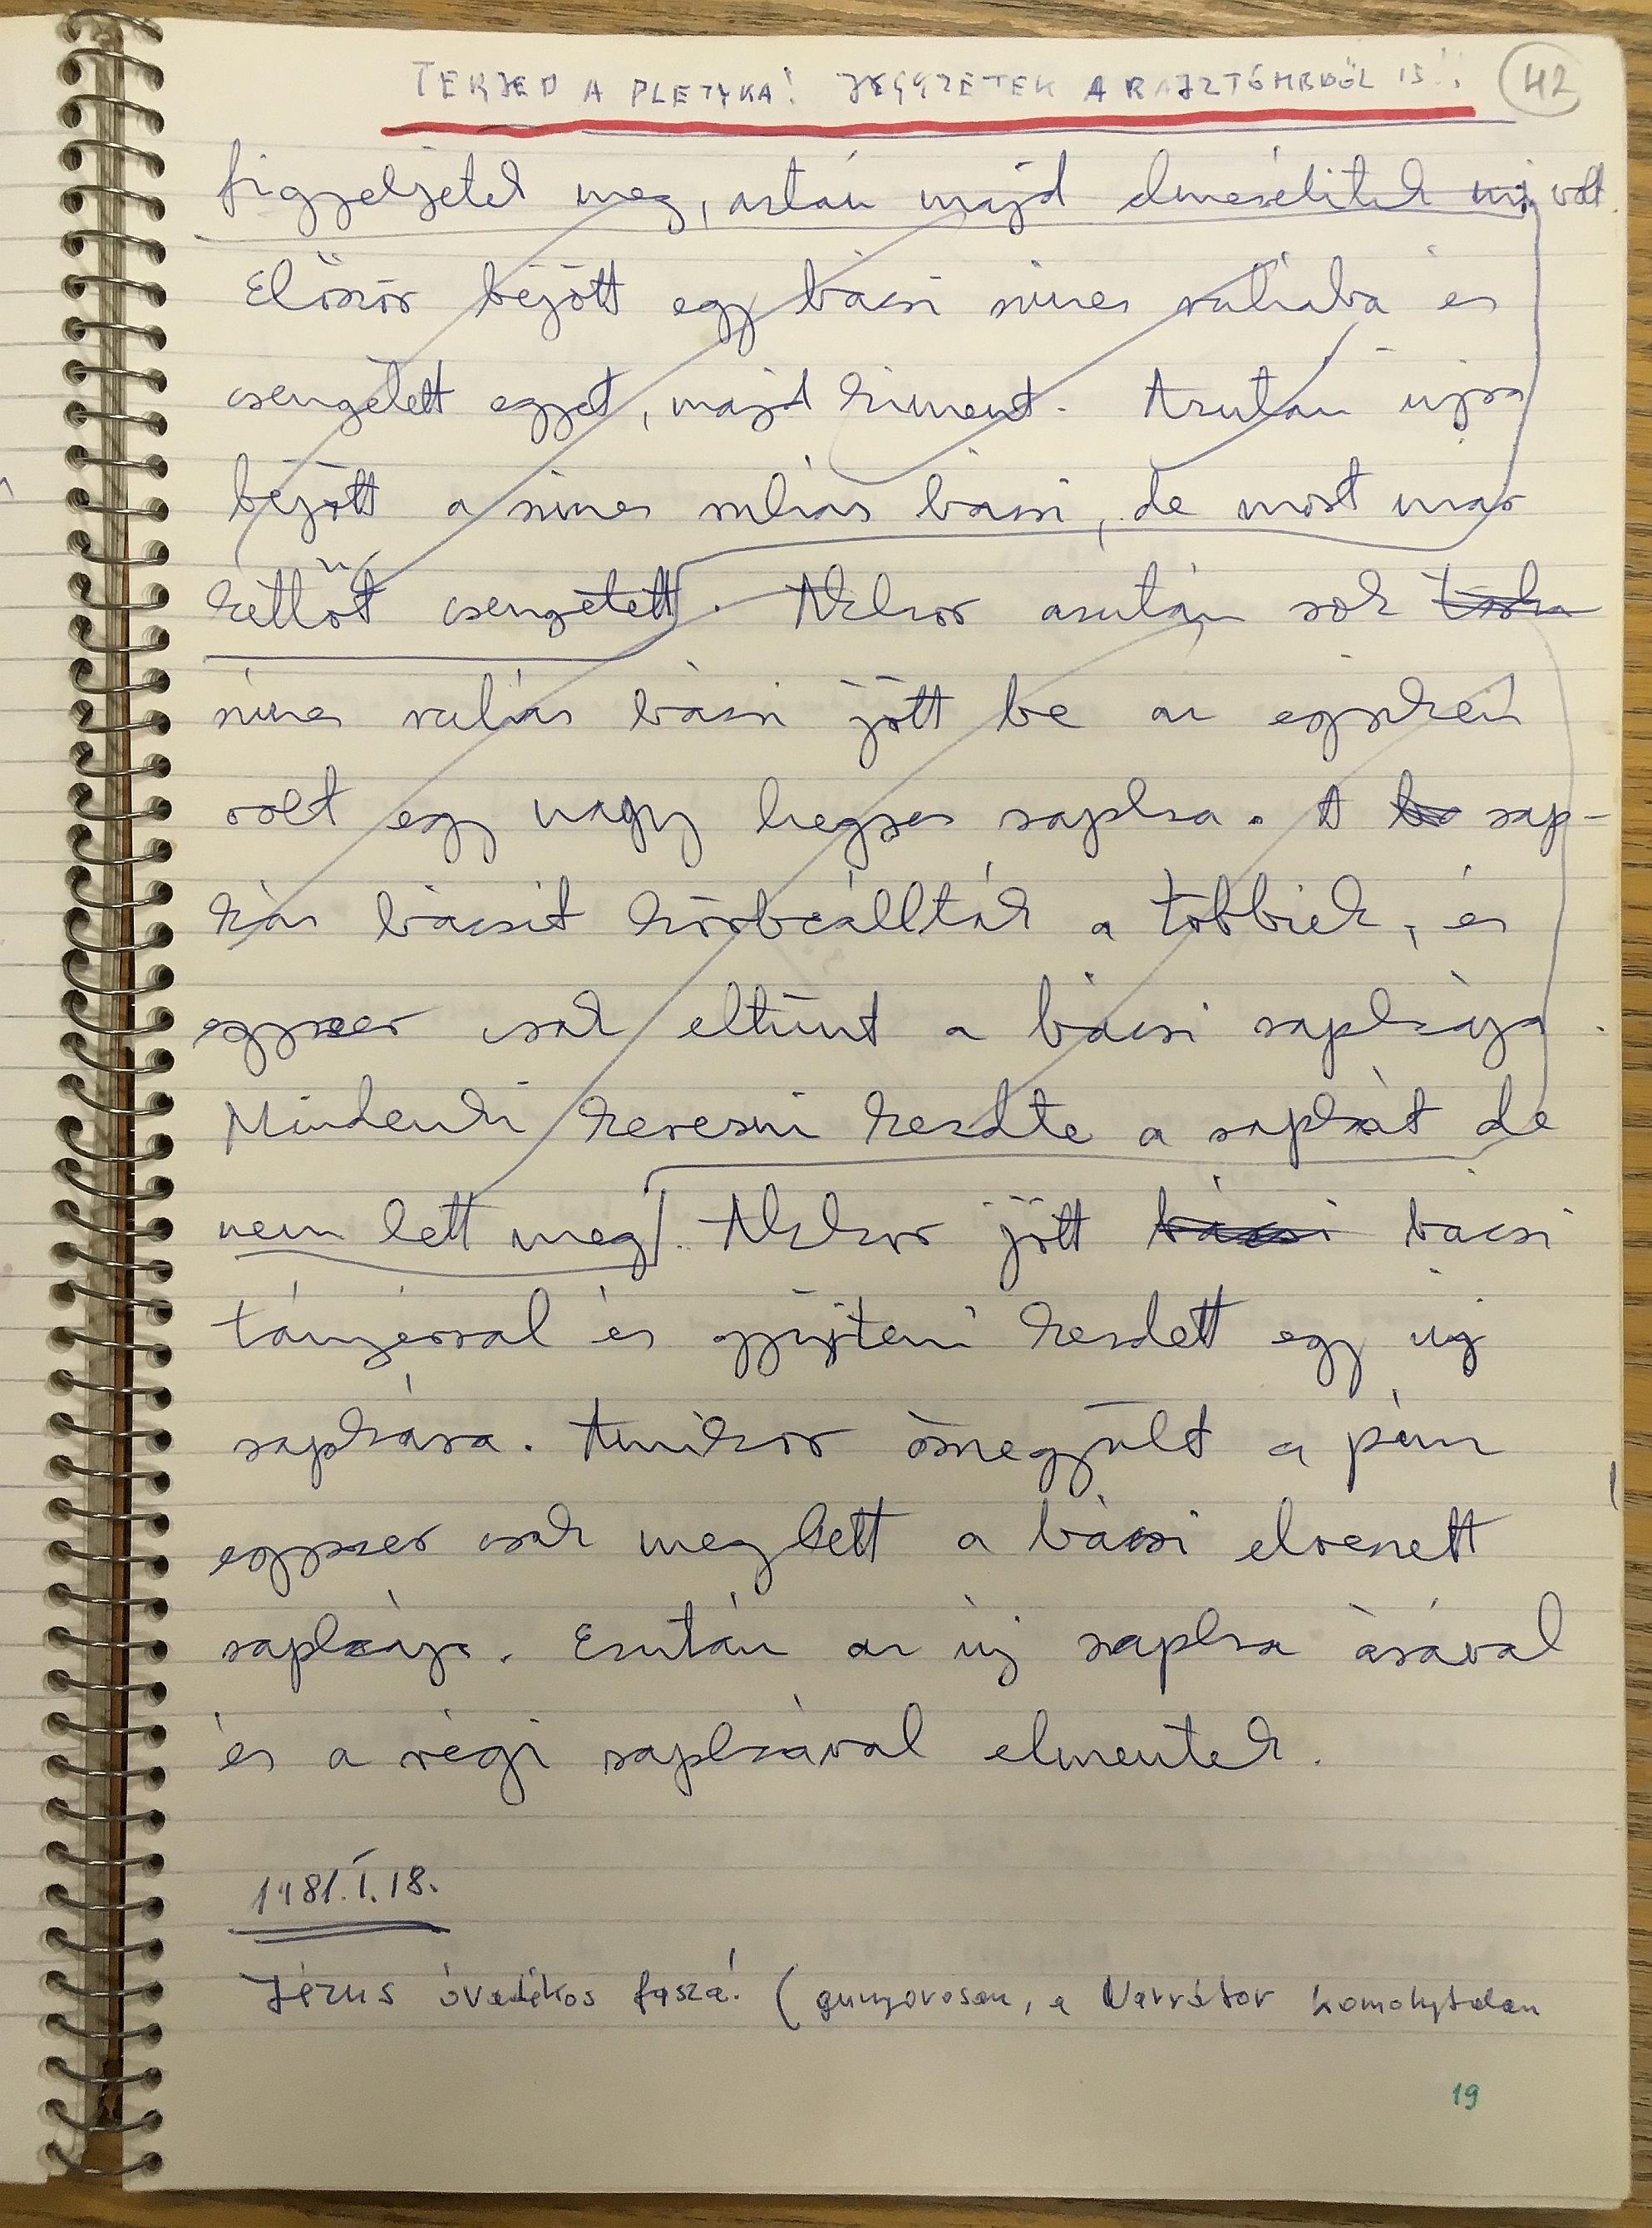 TERJED A PLETYKA! JEGYZETEK A RAJZTÖMBBŐL IS!! 42
figyeljetek meg, aztán majd elmesélitek mi volt.
Először bejött egy bácsi színes ruhába és
csengetett egyet, majd kiment. Azután újra
bejött a színes ruhás bácsi, de most már
kettőt csengetett. Akkor azután sok
színes ruhás bácsi jött be az egyiken
volt egy nagy hegyes sapka. A sap-
kás bácsit körbeállták a többiek, és
egyszer csak eltűnt a bácsi sapkája.
Mindenki keresni kezdte a sapkát de
nem lett meg. Akkor jött bácsi bácsi
tányérral és gyűjteni kezdett egy új
sapkára. Amikor összegyűlt a pénz
egyszer csak meglett a bácsi elveszett
sapkája. Ezután az új sapka árával
és a régi sapkával elmentek.
1981.I.18.
Jézus óvadékos fasza! (gunyorosan, a Narrátor komolytalan
19